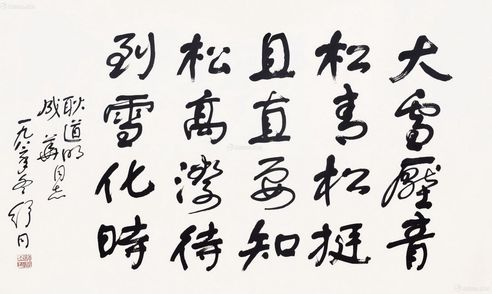 大雪壓青
松青松挺
且直要知
松高潔待
到雪化時
耿道明
成華同志
一九八年冬 舒同